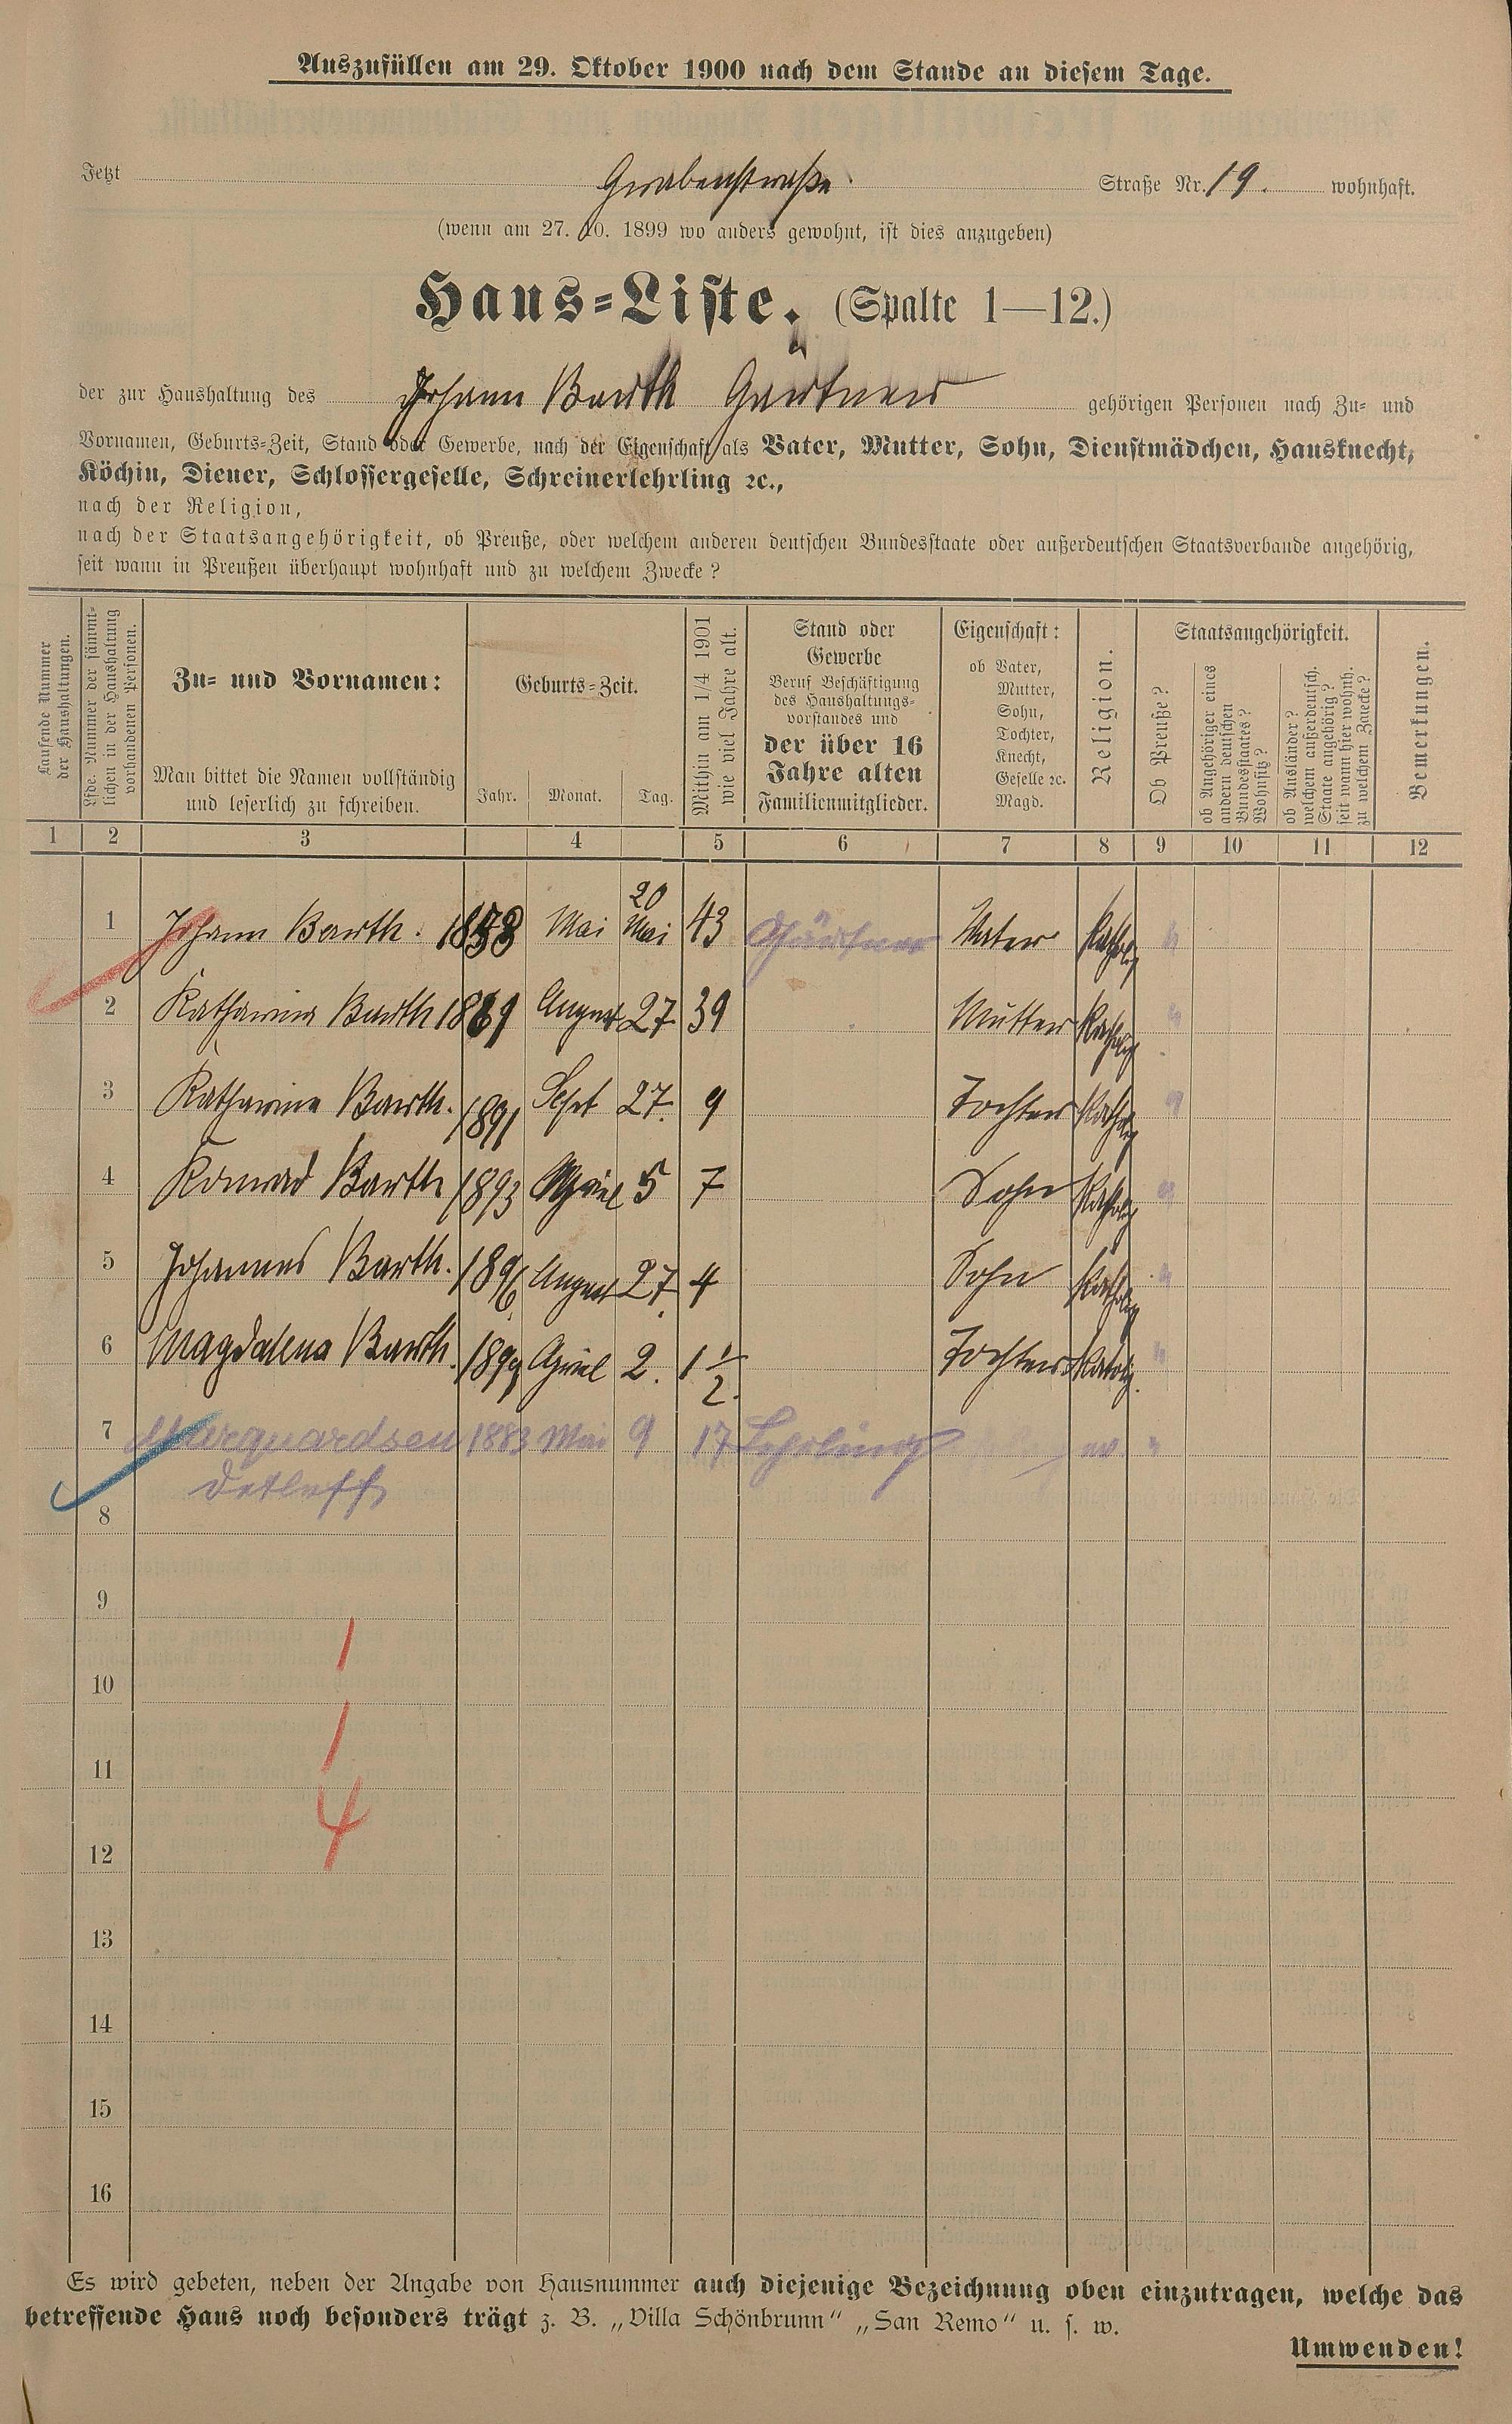 Auszufüllen am 29. Oktober 1900 nach dem Stande an diesem Tage.
Jetzt Grabenstraße Straße Nr. 19. wohnhaft.
(wenn am 27. 10. 1899 wo anders gewohnt, ist dies anzugeben)
Haus-Liste. (Spalte 1—12.)
der zur Haushaltung des Johann Barth Gärtner gehörigen Personen nach Zu- und
Vornamen, Geburts-Zeit, Stand oder Gewerbe, nach der Eigenschaft als Vater, Mutter, Sohn, Dienstmädchen, Hausknecht,
Köchin, Diener, Schlossergeselle, Schreinerlehrling ꝛc.,
nach der Religion,
nach der Staatsangehörigkeit, ob Preuße, oder welchem anderen deutschen Bundesstaate oder außerdeutschen Staatsverbande angehörig,
seit wann in Preußen überhaupt wohnhaft und zu welchem Zwecke?
Laufende Nummer
der Haushaltungen.
Lfde. Nummer der sämmt-
lichen in der Haushaltung
vorhandenen Personen.
Zu- und Vornamen:
Man bittet die Namen vollständig
und leserlich zu schreiben.
Geburts-Zeit.
Jahr. Monat. Tag.
Mithin am 1/4 1901
wie viel Jahre alt.
Stand oder
Gewerbe
Beruf Beschäftigung
des Haushaltungs-
vorstandes und
der über 16
Jahre alten
Familienmitglieder.
Eigenschaft:
ob Vater,
Mutter,
Sohn,
Tochter,
Knecht,
Geselle ꝛc.
Magd.
Religion.
Staatsangehörigkeit.
Ob Preuße?
ob Angehöriger eines
andern deutschen
Bundesstaates?
Wohnsitz?
ob Ausländer?
welchem außerdeutsch.
Staate angehörig?
seit wann hier wohnh.
zu welchem Zwecke?
Bemerkungen.
1 2 3 4 5 6 7 8 9 10 11 12
20
1 Johann Barth. 1858 Mai Mai 43 Gärtner Vater Katholig "
2 Katharina Barth 1861 August 27 39 Mutter Katholig "
3 Katharina Barth. 1891 Sept 27. 9 Tochter Katholig "
4 Konrad Barth 1893 April 5 7 Sohn Katholig "
5 Johannes Barth. 1896. August 27. 4 Sohn Katholig "
6 Magdalena Barth. 1899 April 2. 1 1/2. Tochter Katolig. "
7 Marquardsen 1883 Mai 9 17 Lehrling ev. "
Detleff
8
9
1
10
1
11
4
12
13
14
15
16
Es wird gebeten, neben der Angabe von Hausnummer auch diejenige Bezeichnung oben einzutragen, welche das
betreffende Haus noch besonders trägt z. B. „Villa Schönbrunn" „San Remo" u. s. w.
Umwenden!